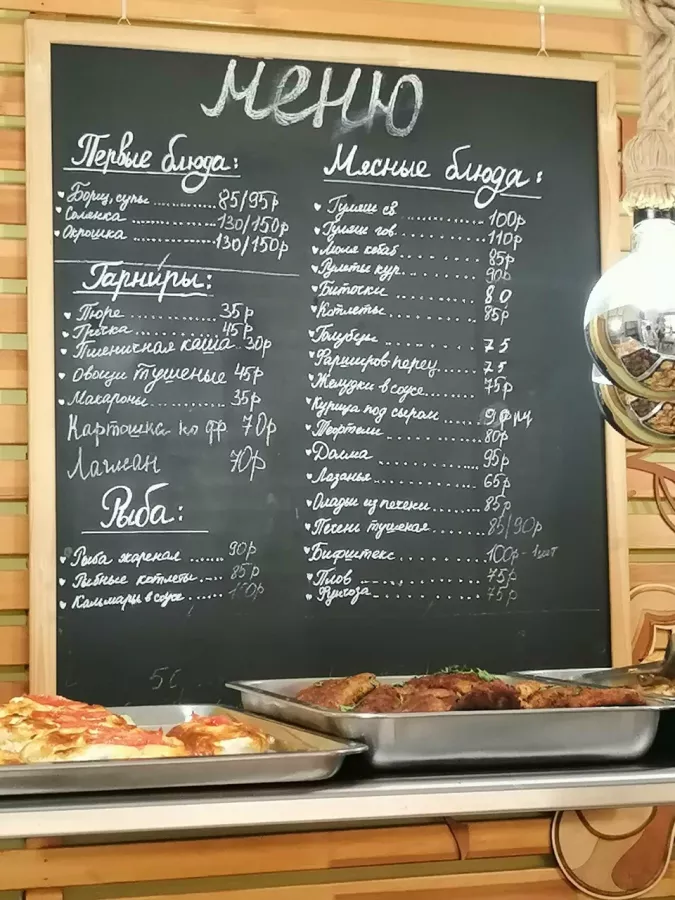 Меню
Первые блюда:
Борщ, супы ............ 85/95р
Солянка .............. 130/150р
Окрошка .............. 130/150р
Гарниры:
Пюре ............ 35р
Гречка ............ 45р
Пшеничная каша 30р
Овощи тушеные 45р
Макароны ............ 35р
Картошка по фр 70р
Лагман 70р
Рыба:
Рыба жареная ...... 90р
Рыбные котлеты .... 85р
Кальмары в соусе ....
Мясные блюда:
Гуляш св ............ 100р
Гуляш гов ............ 110р
Люля кебаб ............ 85р
Рулеты кур. ............ 90р
Биточки ............ 80
Котлеты ............ 85р
Голубцы ............ 75
Фарширов. перец ...... 75
Желудки в соусе ...... 75р
Курица под сыром ......
Тефтели ............ 80р
Долма ............ 95р
Лазанья ............ 65р
Оладьи из печени ...... 85р
Печень тушеная ...... 85/90р
Бифштекс ............ 100р - 1шт
Плов ............ 75р
Фунчоза ............ 75р